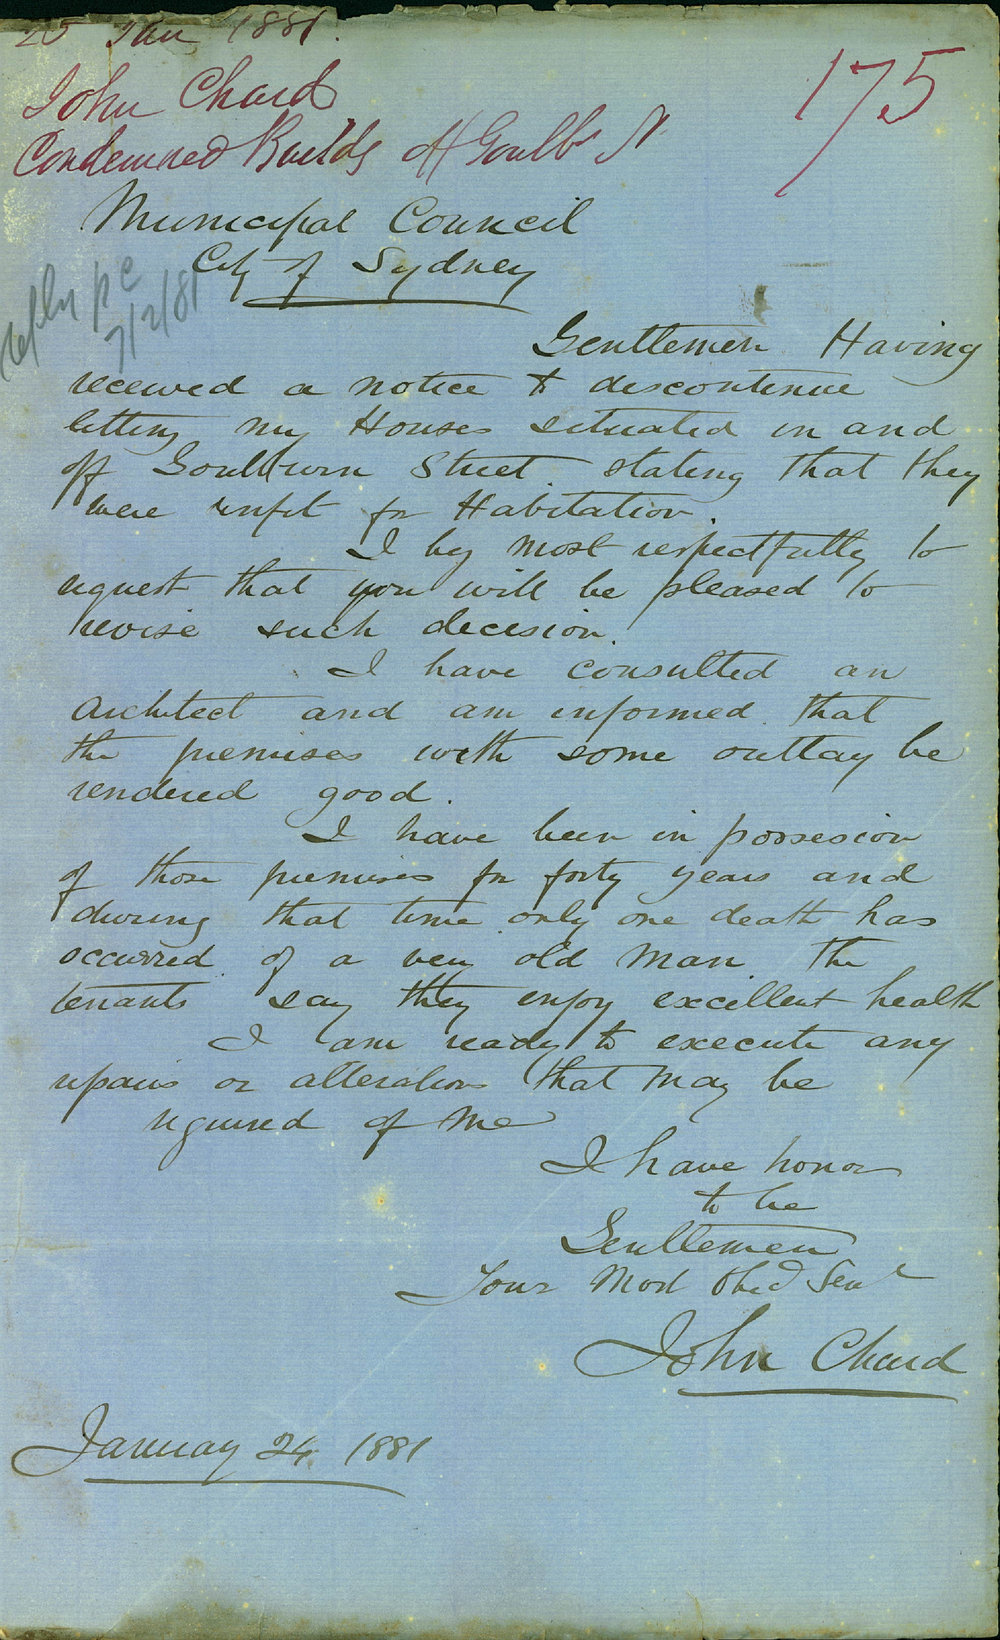 25 Jan 1881.
John Chard
175
Condemned Builds off Goulbn St
Municipal Council
City of Sydney
reply pc
7/2/81
Gentlemen Having
received a notice to discontinue
letting my Houses situated in and
off Goulburn Street stating that they
were unfit for Habitation.
I beg most respectfully to
request that you will be pleased to
revise such decision.
I have consulted an
Architect and am informed that
the premises with some outlay be
rendered good.
I have been in possesion
of those premises for forty years and
during that time only one death has
occurred of a very old man the
tenants say they enjoy excellent health
I am ready to execute any
repairs or alterations that may be
required of me
I have honor
to be
Gentlemen
Your Most Obed Servt
John Chard
January 24 1881